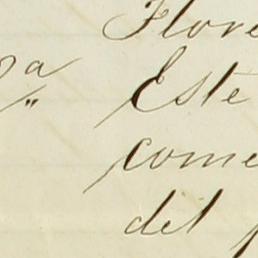 Flore
Este
come
del